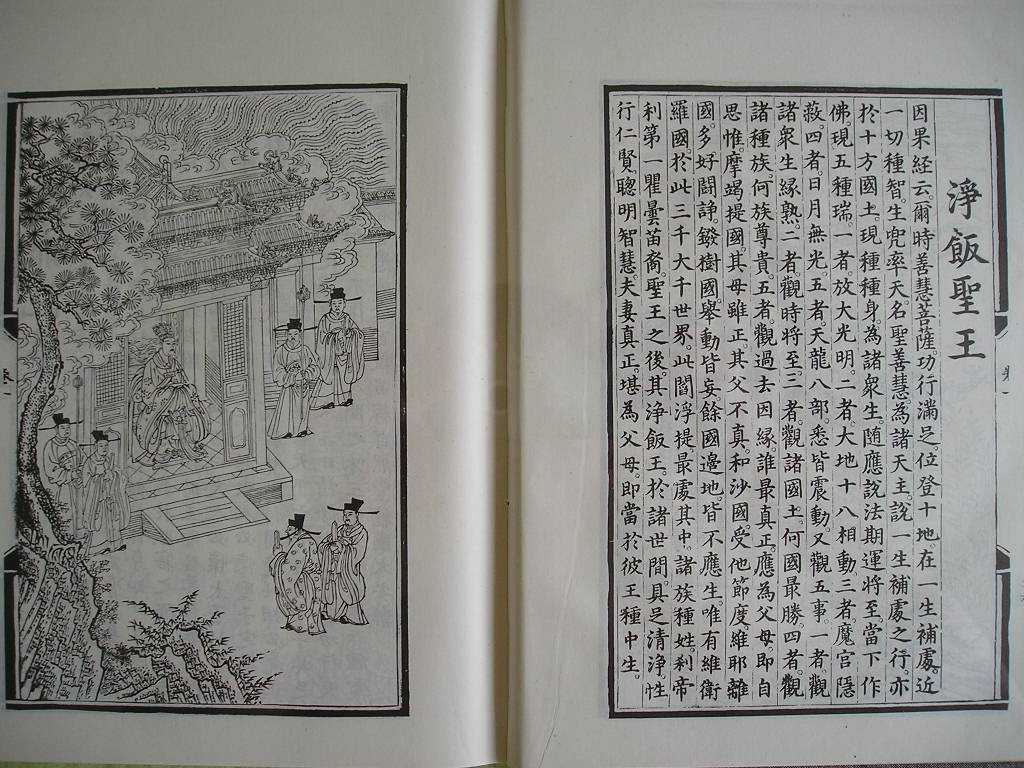 淨飯聖王
因果經云。爾時善慧菩薩。功行滿足。位登十地。在一生補處。近
一切種智。生兜率天。名聖善慧。為諸天主。說一生補處之行。亦
於十方國土。現種種身。為諸眾生。隨應說法。期運將至。當下作
佛。現五種瑞。一者。放大光明。二者。大地十八相動。三者。魔宮隱
蔽。四者。日月無光。五者。天龍八部。悉皆震動。又觀五事。一者。觀
諸眾生緣熟。二者。觀時將至。三者。觀諸國土。何國最勝。四者。觀
諸種族。何族尊貴。五者。觀過去因緣。誰最真正。應為父母。即自
思惟。摩竭提國。其母雖正。其父不真。和沙國。受他節度。維耶離
國。多好鬪諍。鏺樹國。舉動皆妄。餘國邊地。皆不應生。唯有維衛
羅國。於此三千大千世界。此閻浮提。最處其中。諸族種姓。剎帝
利第一。瞿曇苗裔。聖王之後。其淨飯王。於諸世間。具足清淨。性
行仁賢。聰明智慧。夫妻真正。堪為父母。即當於彼王種中生。
卷一